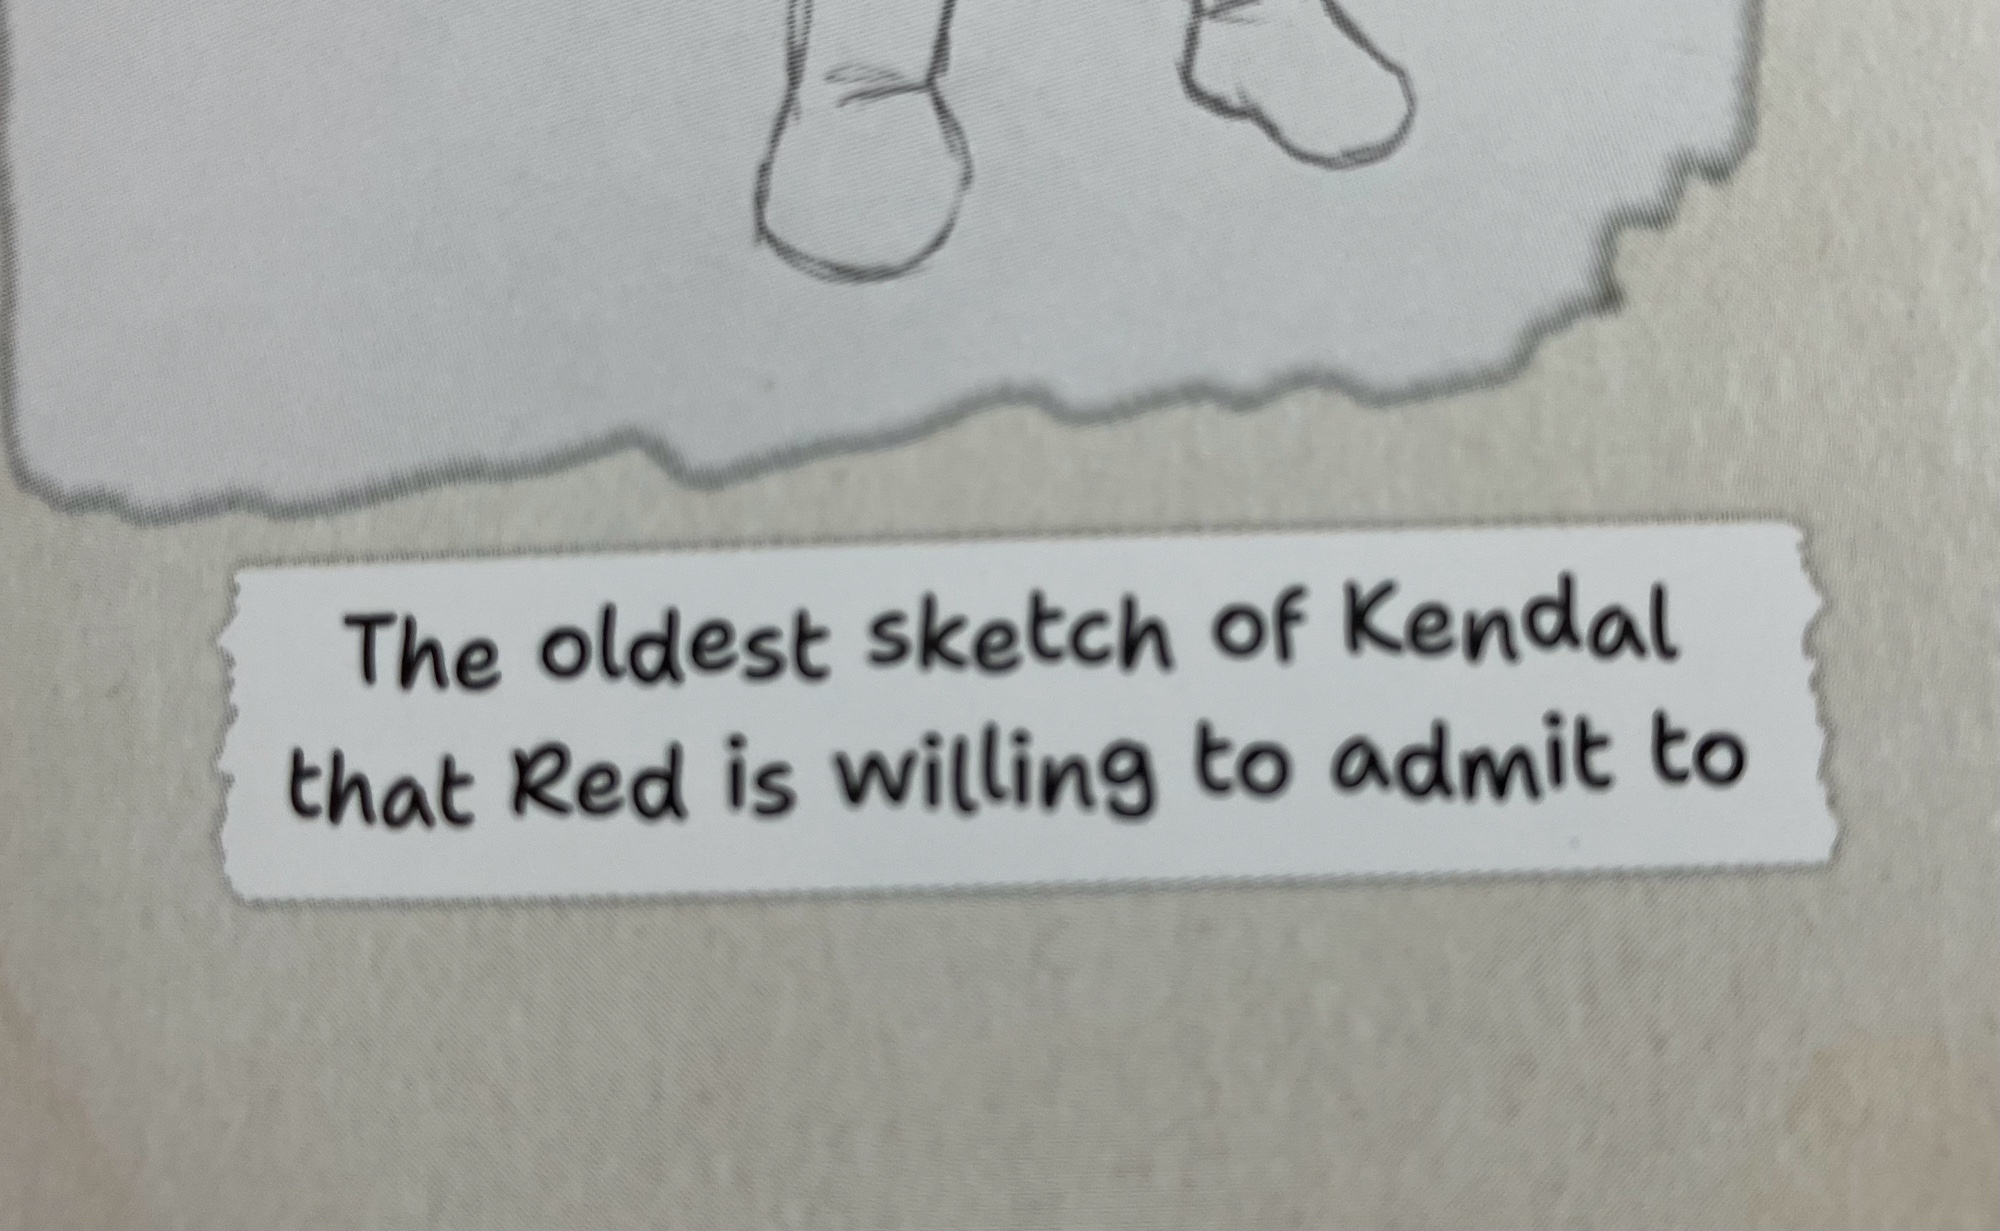 The oldest sketch of Kendal
that Red is willing to admit to